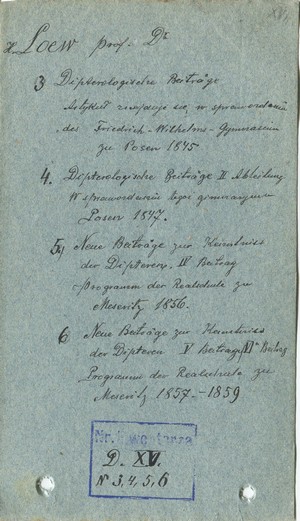 XV.
H. Loew prof. Dr
3 Dipterologische Beiträge
Artykuł znajduje się w sprawozdaniu
des Friedrich-Wilhelms-Gymnasium
zu Posen 1845
4. Dipterologische Beiträge II Abteilung
W sprawozdaniu tegoż gimnazjum
Posen 1847.
5) Neue Beiträge zur Kenntniss
der Dipteren, IV Beitrag
Programm der Realschule zu
Meseritz 1856.
6 Neue Beiträge zur Kenntniss
der Dipteren V Beitrag VI Beitrag
Programm der Realschule zu
Meseritz 1857.-1859
Nr. inwentarza
D. XV.
N 3, 4, 5, 6